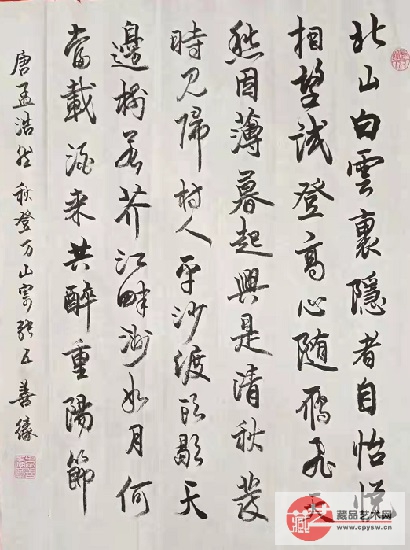 北山白雲裏隱者自怡悅
相望試登高心随雁飛滅
愁因薄暮起興是清秋發
時見歸村人平沙渡頭歇天
邊樹若荠江畔洲如月何
當載酒来共醉重陽節
唐孟浩然秋登万山寄張五善緣
藏品艺术网
www.cpysw.cn